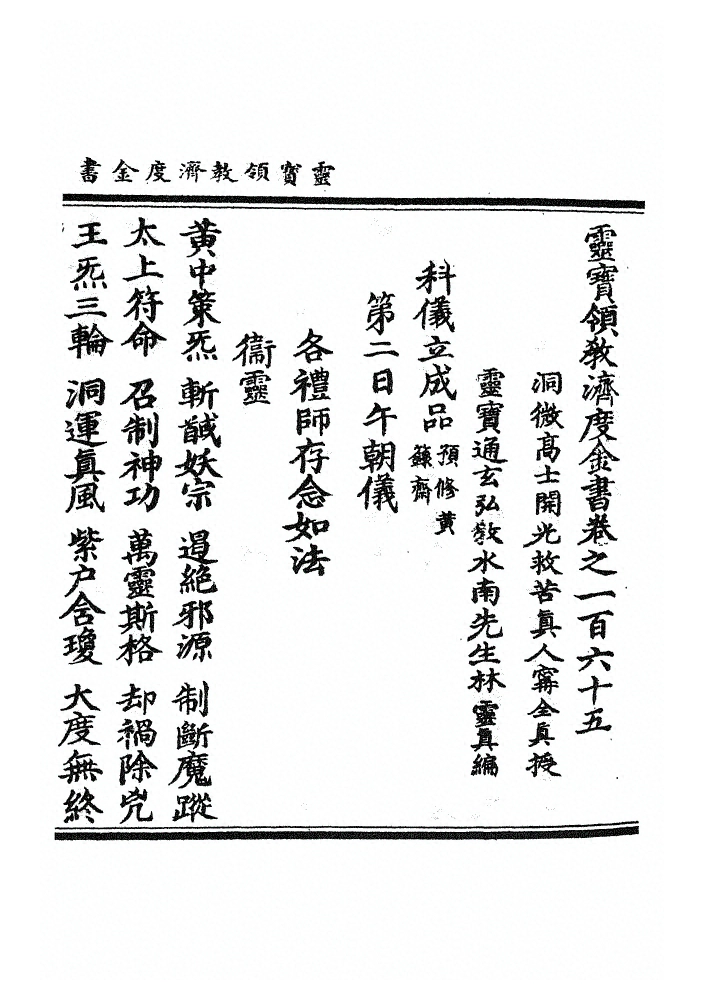 靈寳領教濟度金書
靈寶領教濟度金書卷之一百六十五
洞微高士開光救苦眞人甯全眞授
靈寶通玄弘教水南先生林靈眞編
科儀立成品預修黃籙齋
第二日午朝儀
各禮師存念如法
衞靈
黃中策炁　斬馘妖宗　遏絶邪源　制斷魔蹤
太上符命　召制神功　萬靈斯格　却禍除兇
王炁三輪　洞運眞風　紫户含瓊　大度無終